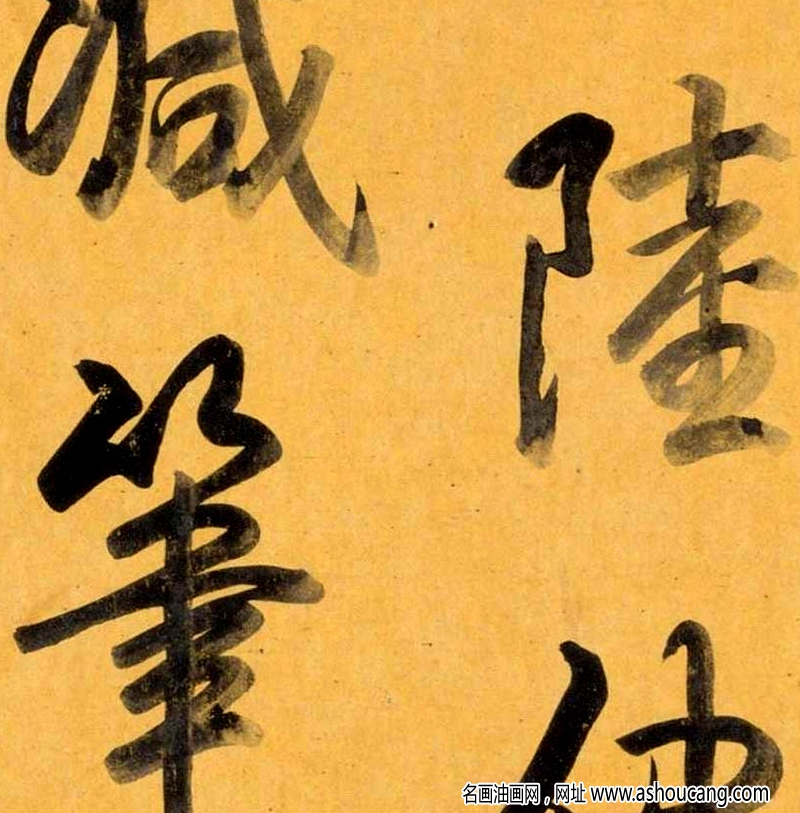 陸仲
減筆
名画油画网，网址 www.ashoucang.com